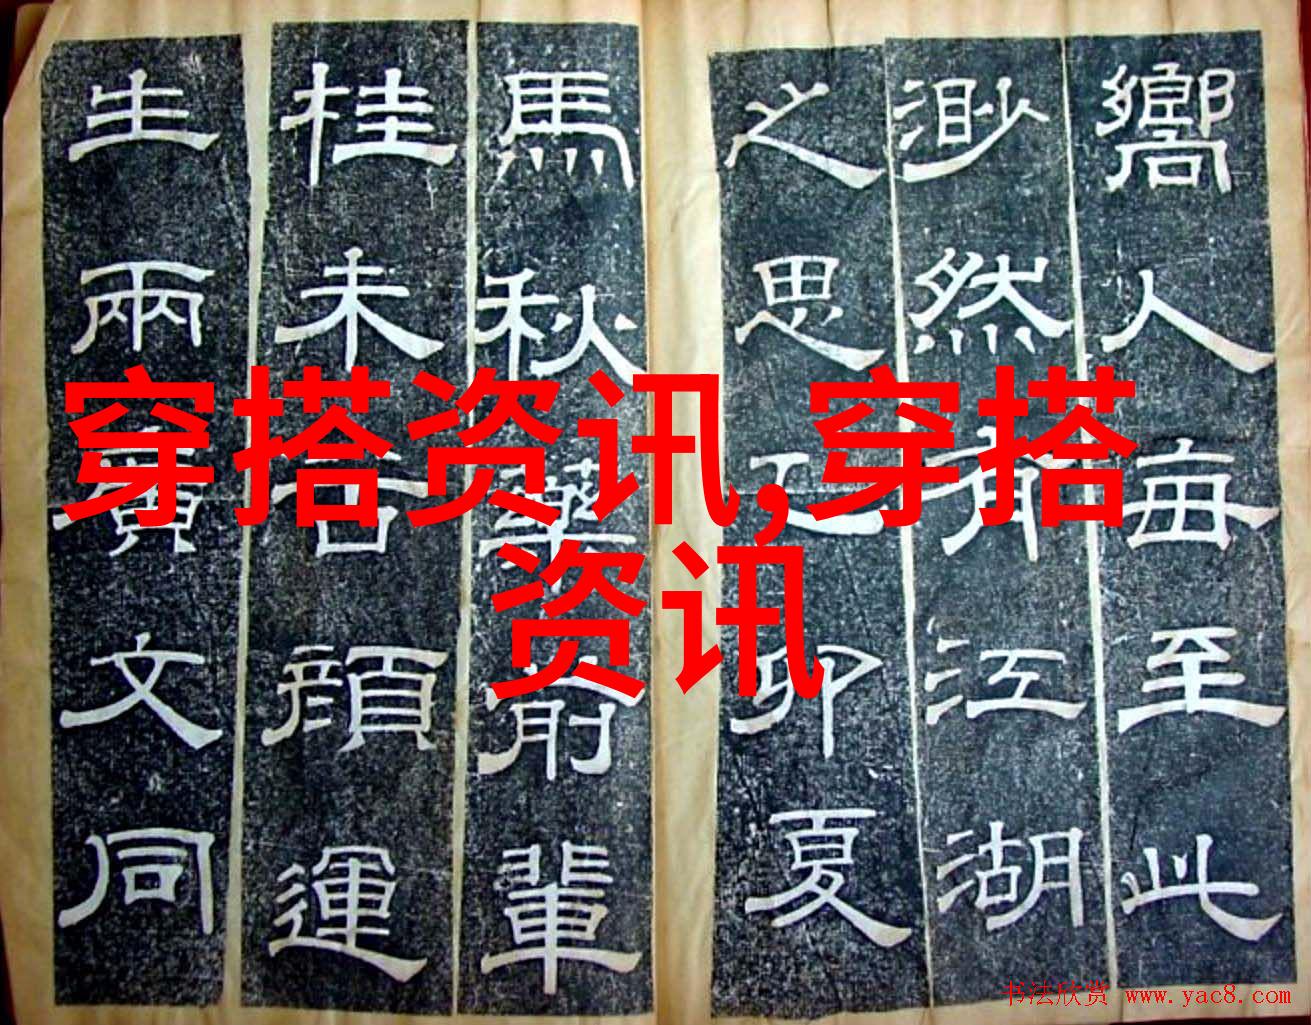 穿搭资讯,穿搭
资讯
嚮人每至此
渺然有江湖
之思乙卯夏
馬秋藥前輩
桂未谷顔運
生兩廣文同
书法欣赏 www.yac8.com